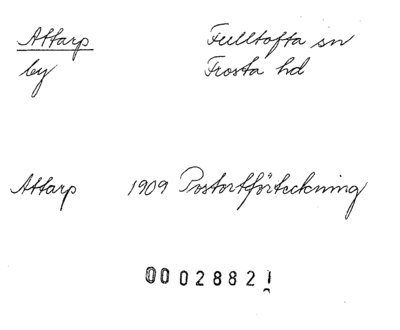 Attarp Fulltofta sn
by Frosta hd
Attarp 1909 Postortförteckning
00028821